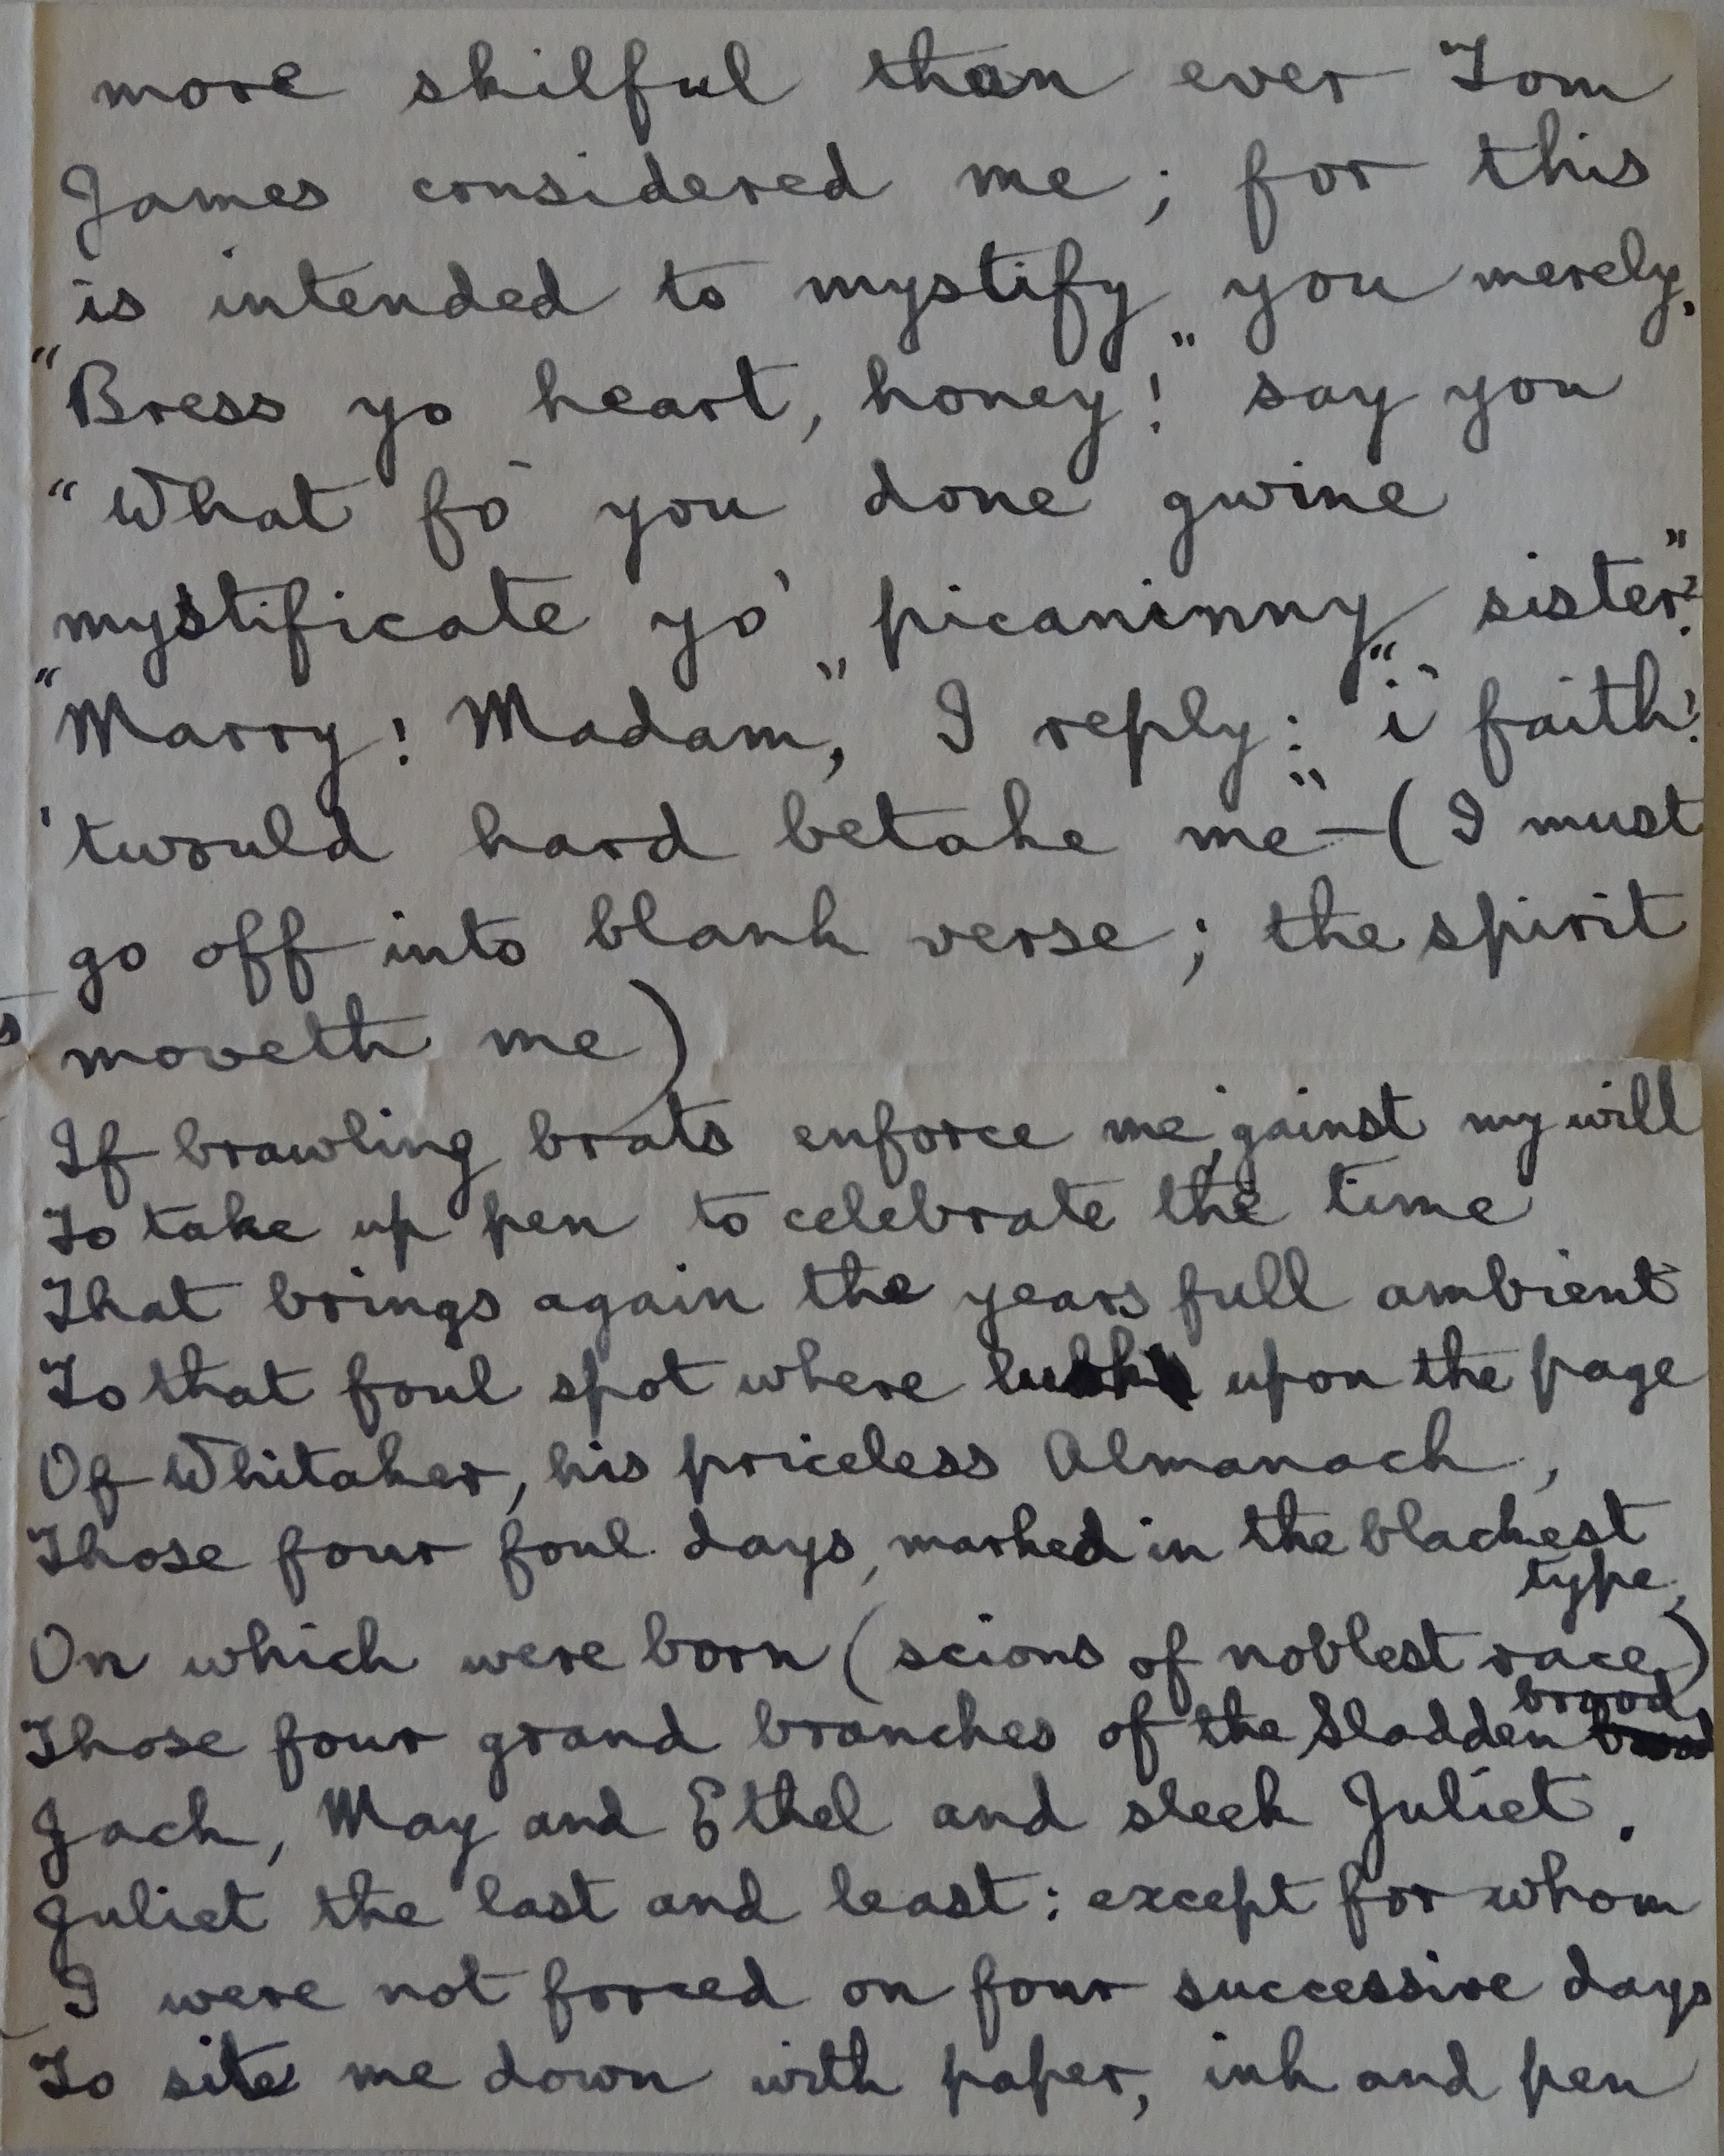 more skilful than ever Tom
James considered me; for this
is intended to mystify you merely.
"Bress yo heart, honey!" say you
"What fo' you done gwine
mystificate yo' picaninny sister?"
"Marry! Madam," I reply: "i' faith!
'twould hard betake me" — (I must
go off into blank verse; the spirit
moveth me)
If brawling brats enforce me, 'gainst my will
To take up pen to celebrate the time
That brings again the years full ambient
To that foul spot where upon the page
Of Whitaker, his priceless Almanack,
Those four foul days, marked in the blackest
type,
On which were born (scions of noblest race)
Those four grand branches of the Sladden brood
Jack, May and Ethel and sleek Juliet.
Juliet the last and least: except for whom
I were not forced on four successive days
To site me down with paper, ink and pen